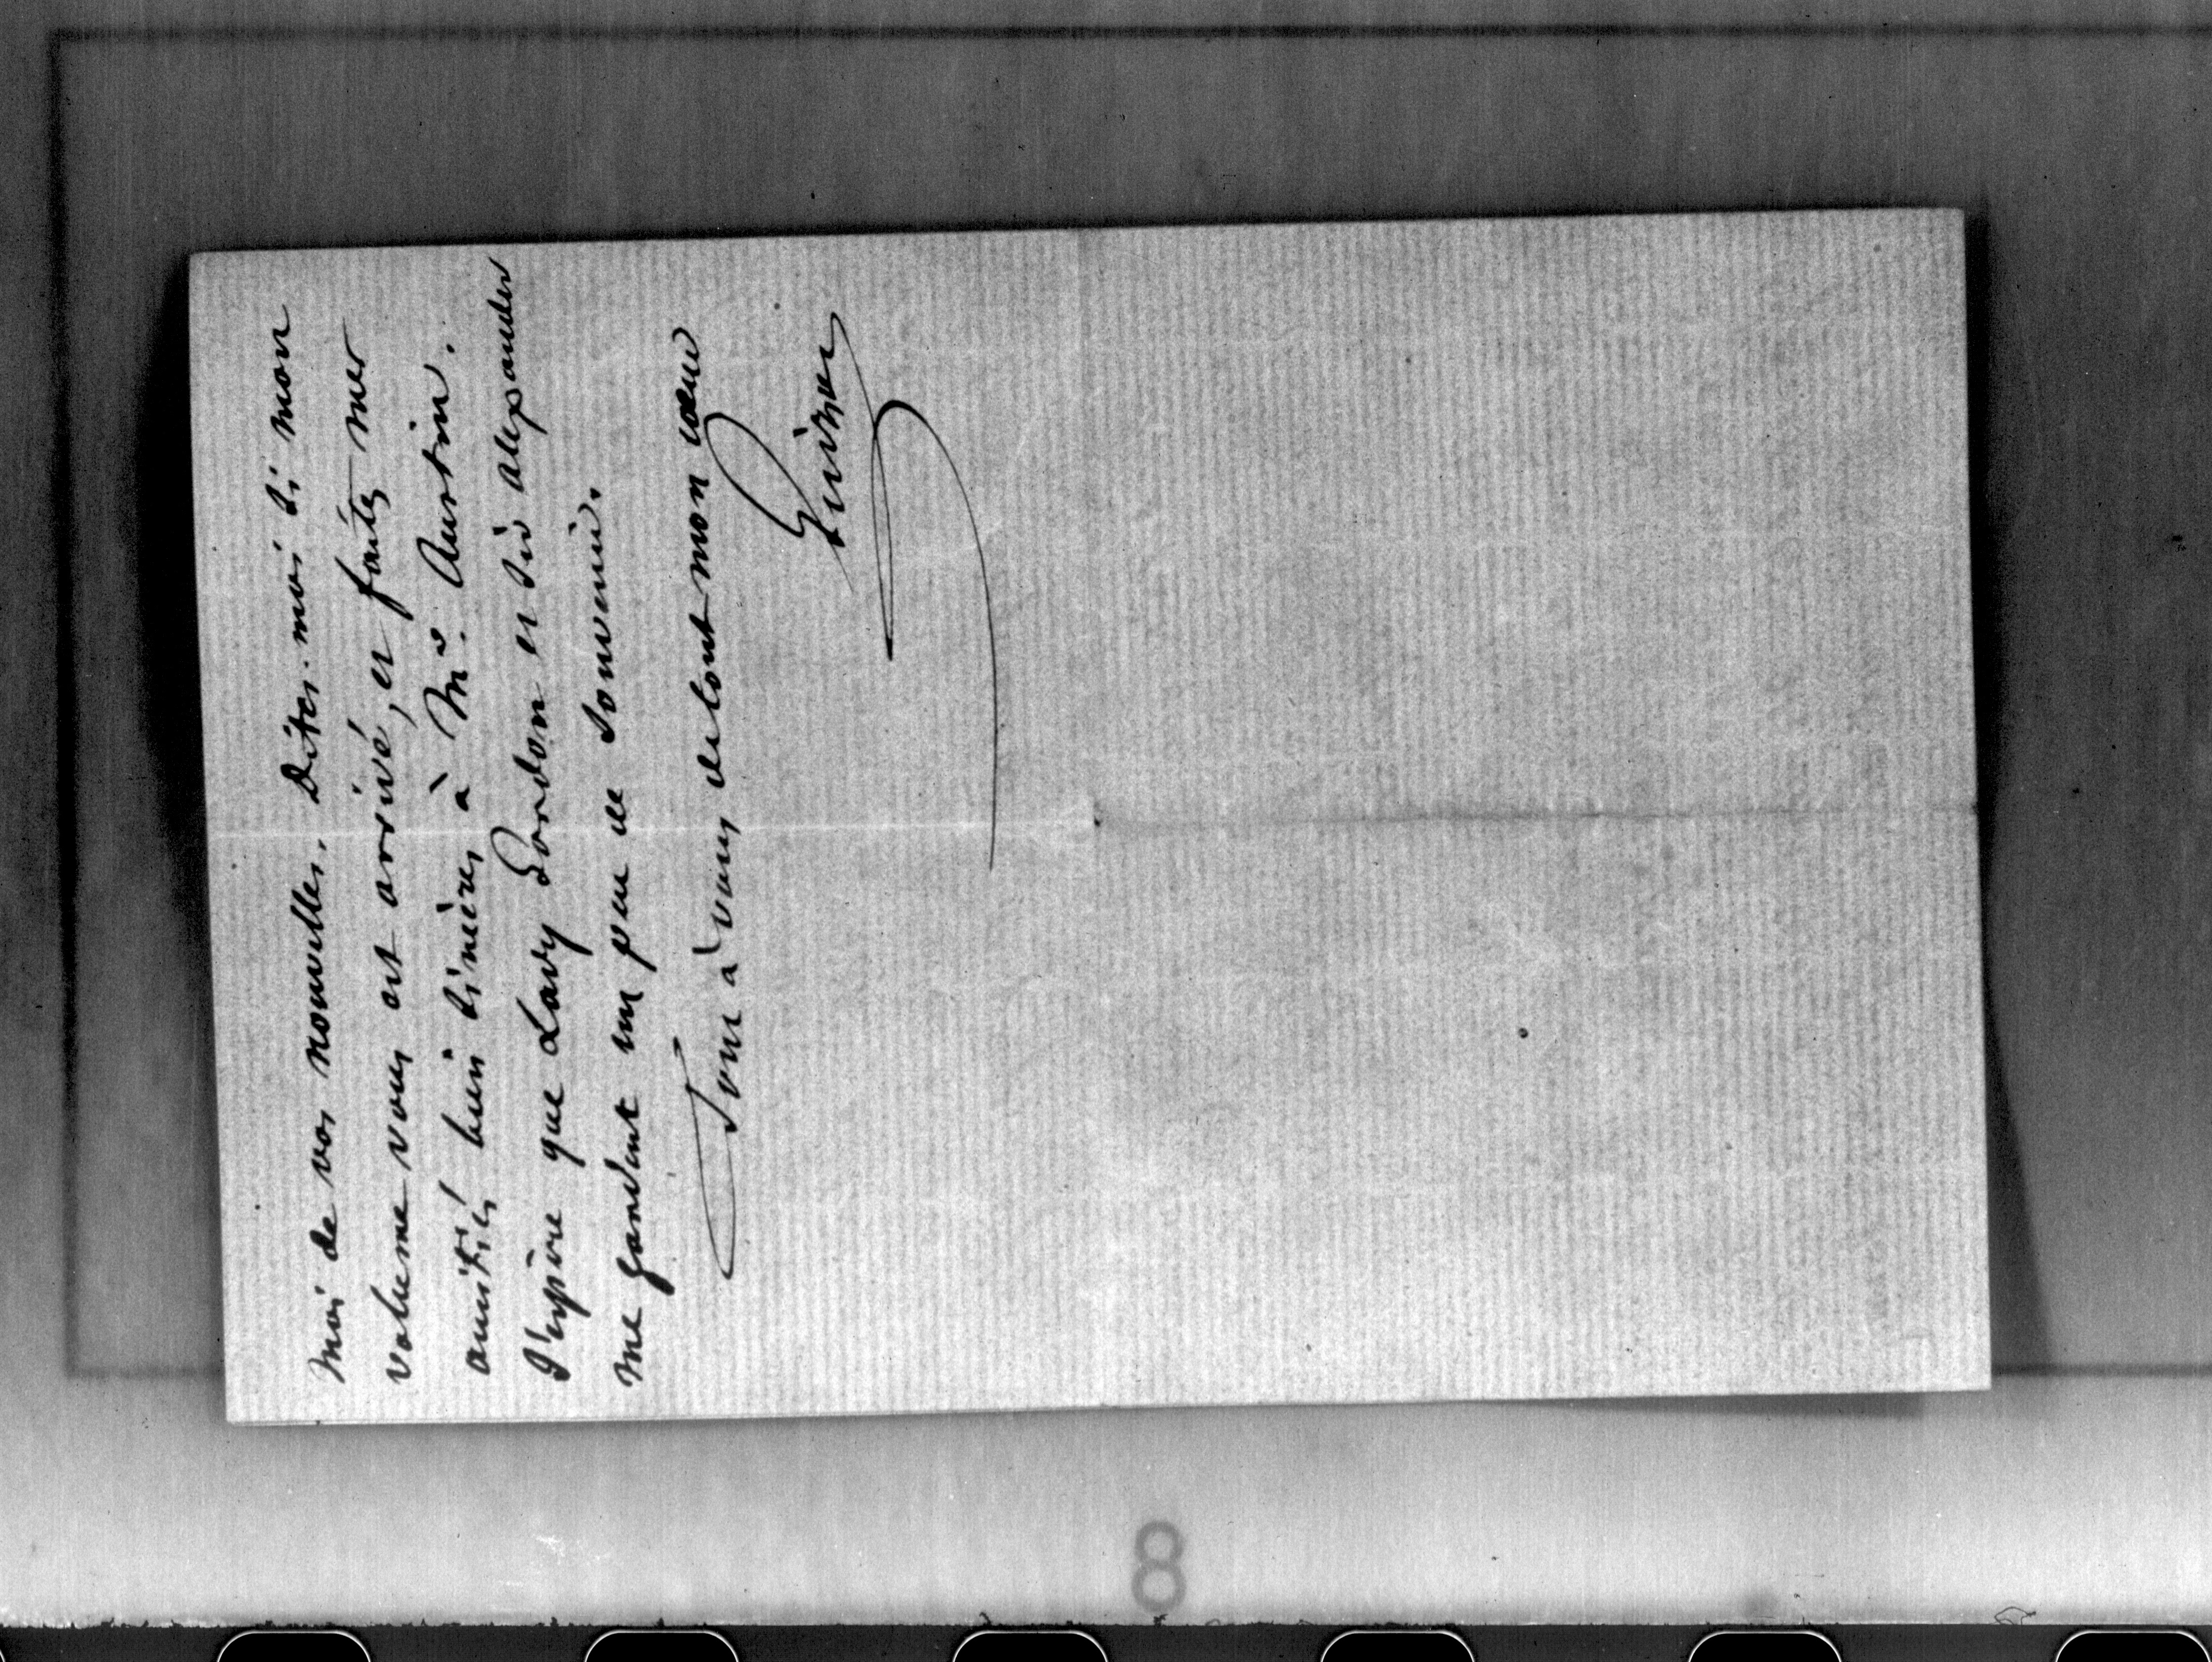 moi de vos nouvelles. Dites-moi si mon
volume vous est arrivé, et faites mes
amitiés bien sincères à Mr. Austin.
J'espère que Lady Gordon et Sir Alexander
me gardent un peu de souvenir.
Tout à vous de tout mon cœur
Guizot
8